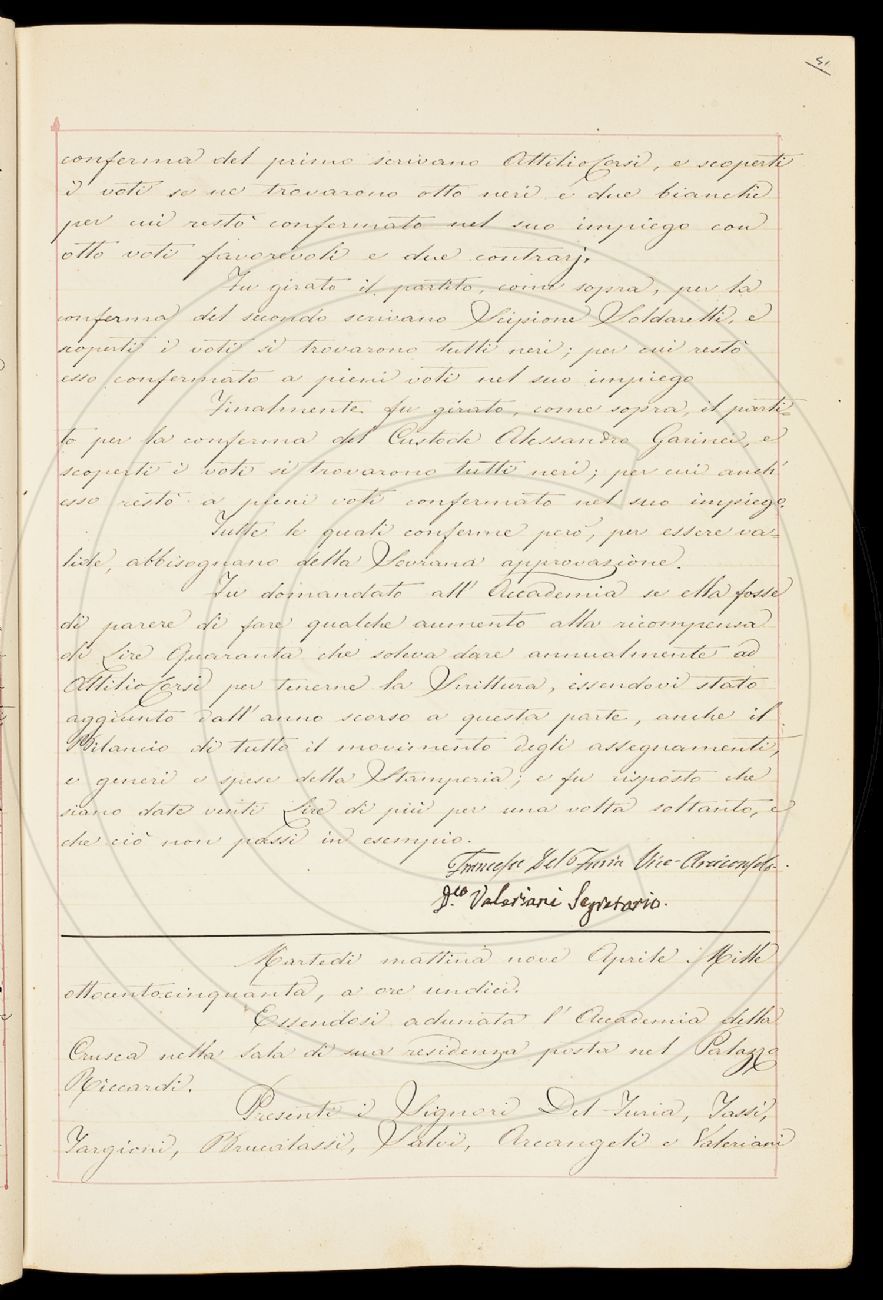 51
conferma del primo scrivano Attilio Corsi, e scoperti
i voti se ne trovarono otto neri e due bianchi
per cui restò confermato nel suo impiego con
otto voti favorevoli e due contrarj.
Fu girato il partito, come sopra, per la
conferma del secondo scrivano Scipione Soldarelli, e
scoperti i voti si trovarono tutti neri; per cui restò
esso confermato a pieni voti nel suo impiego
Finalmente fu girato, come sopra, il parti-
to per la conferma del Custode Alessandro Garinei, e
scoperti i voti si trovarono tutti neri; per cui anch'
esso restò a pieni voti confermato nel suo impiego.
Tutte le quali conferme però, per essere va-
lide, abbisognano della Sovrana approvazione.
Fu domandato all' Accademia se ella fosse
di parere di fare qualche aumento alla ricompensa
di Lire Quaranta che soleva dare annualmente ad
Attilio Corsi per tenerne la Scrittura, essendovi stato
aggiunto dall' anno scorso a questa parte, anche il
Bilancio di tutto il movimento degli assegnamenti,
e generi e spese della Stamperia; e fu risposto che
siano date venti Lire di più per una volta soltanto, e
che ciò non passi in esempio.
Francesco Del Furia Vice-Arciconsolo.
Dco. Valeriani Segretario.
Martedì mattina nove Aprile Mille
ottocentocinquanta, a ore undici.
Essendosi adunata l' Accademia della
Crusca nella sala di sua residenza posta nel Palazzo
Riccardi.
Presenti i Signori Del-Furia, Tassi,
Targioni, Brucalassi, Salvi, Arcangeli e Valeriani